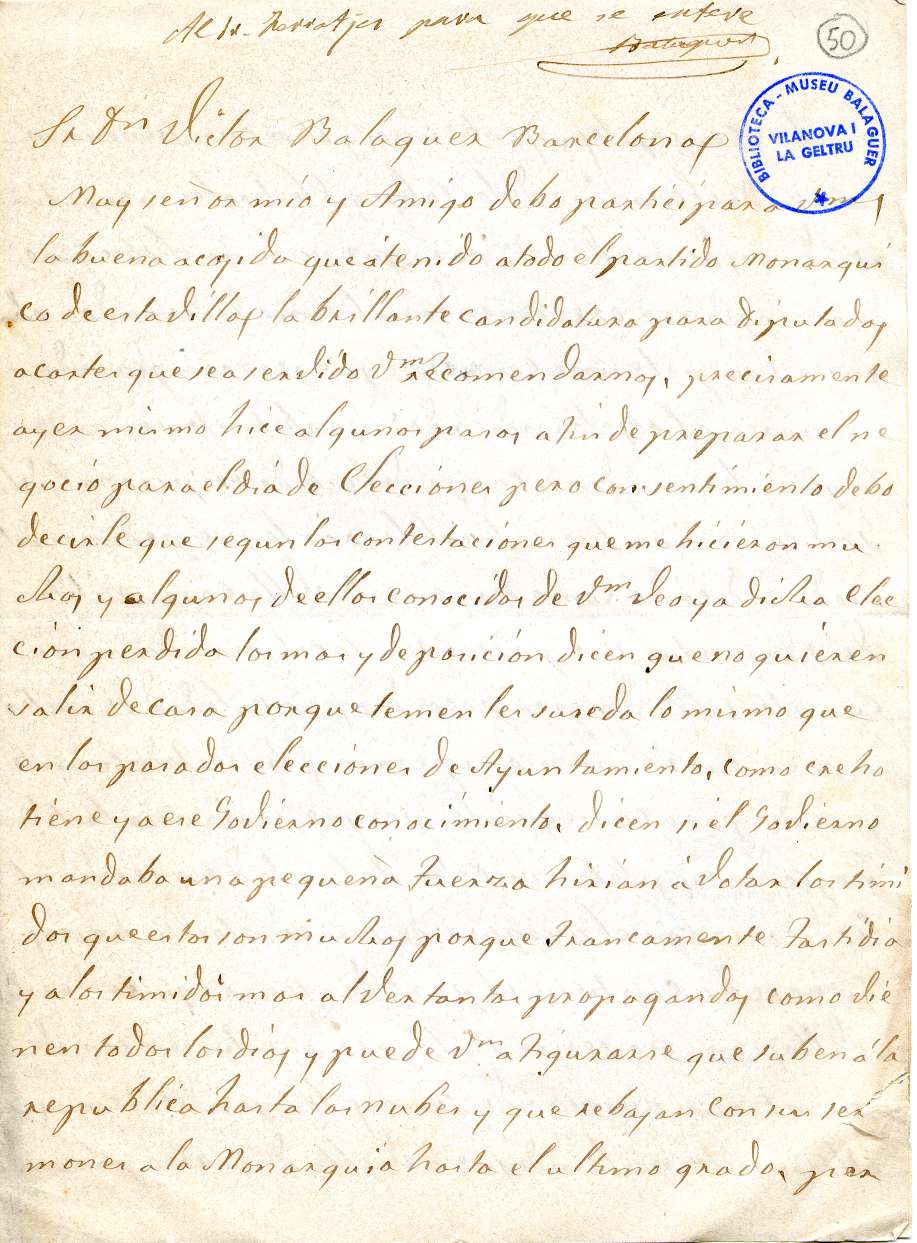 Al Sr. Ferratjes para que se entere
Balaguer
50
BIBLIOTECA - MUSEU BALAGUER
VILANOVA I
LA GELTRU
Sr Dn Victor Balaguer Barcelona
Muy señor mio y Amigo debo participar a Vm
la buena acojida que á tenido a todo el partido Monarqui
co de esta Villa la brillante candidatura para diputados
a cortes que se a servido Vm recomendarnos, precisamente
ayer mismo hice algunos pasos a fin de preparar el ne
gocio para el dia de Elecciones pero con sentimiento debo
decirle que segun las contestaciones que me hicieron mu
chos y algunos de ellos conocidos de Vm Veo ya dicha Elec
ción perdida los mas y de posición dicen que no quieren
salir de casa porque temen les suseda lo mismo que
en las pasadas elecciones de Ayuntamiento, como creho
tiene ya ese Govierno conocimiento, dicen si el Govierno
mandaba una pequeña fuerza hirian á Votar los timi
dos que estos son muchos porque francamente fastidia
y a los timidos mas al ver tantas propagandas como vie
nen todos los dias y puede Vm afigurarse que suben á la
republica hasta las nubes y que rebajan con sus ser
mones a la Monarquia hasta el ultimo grado, per